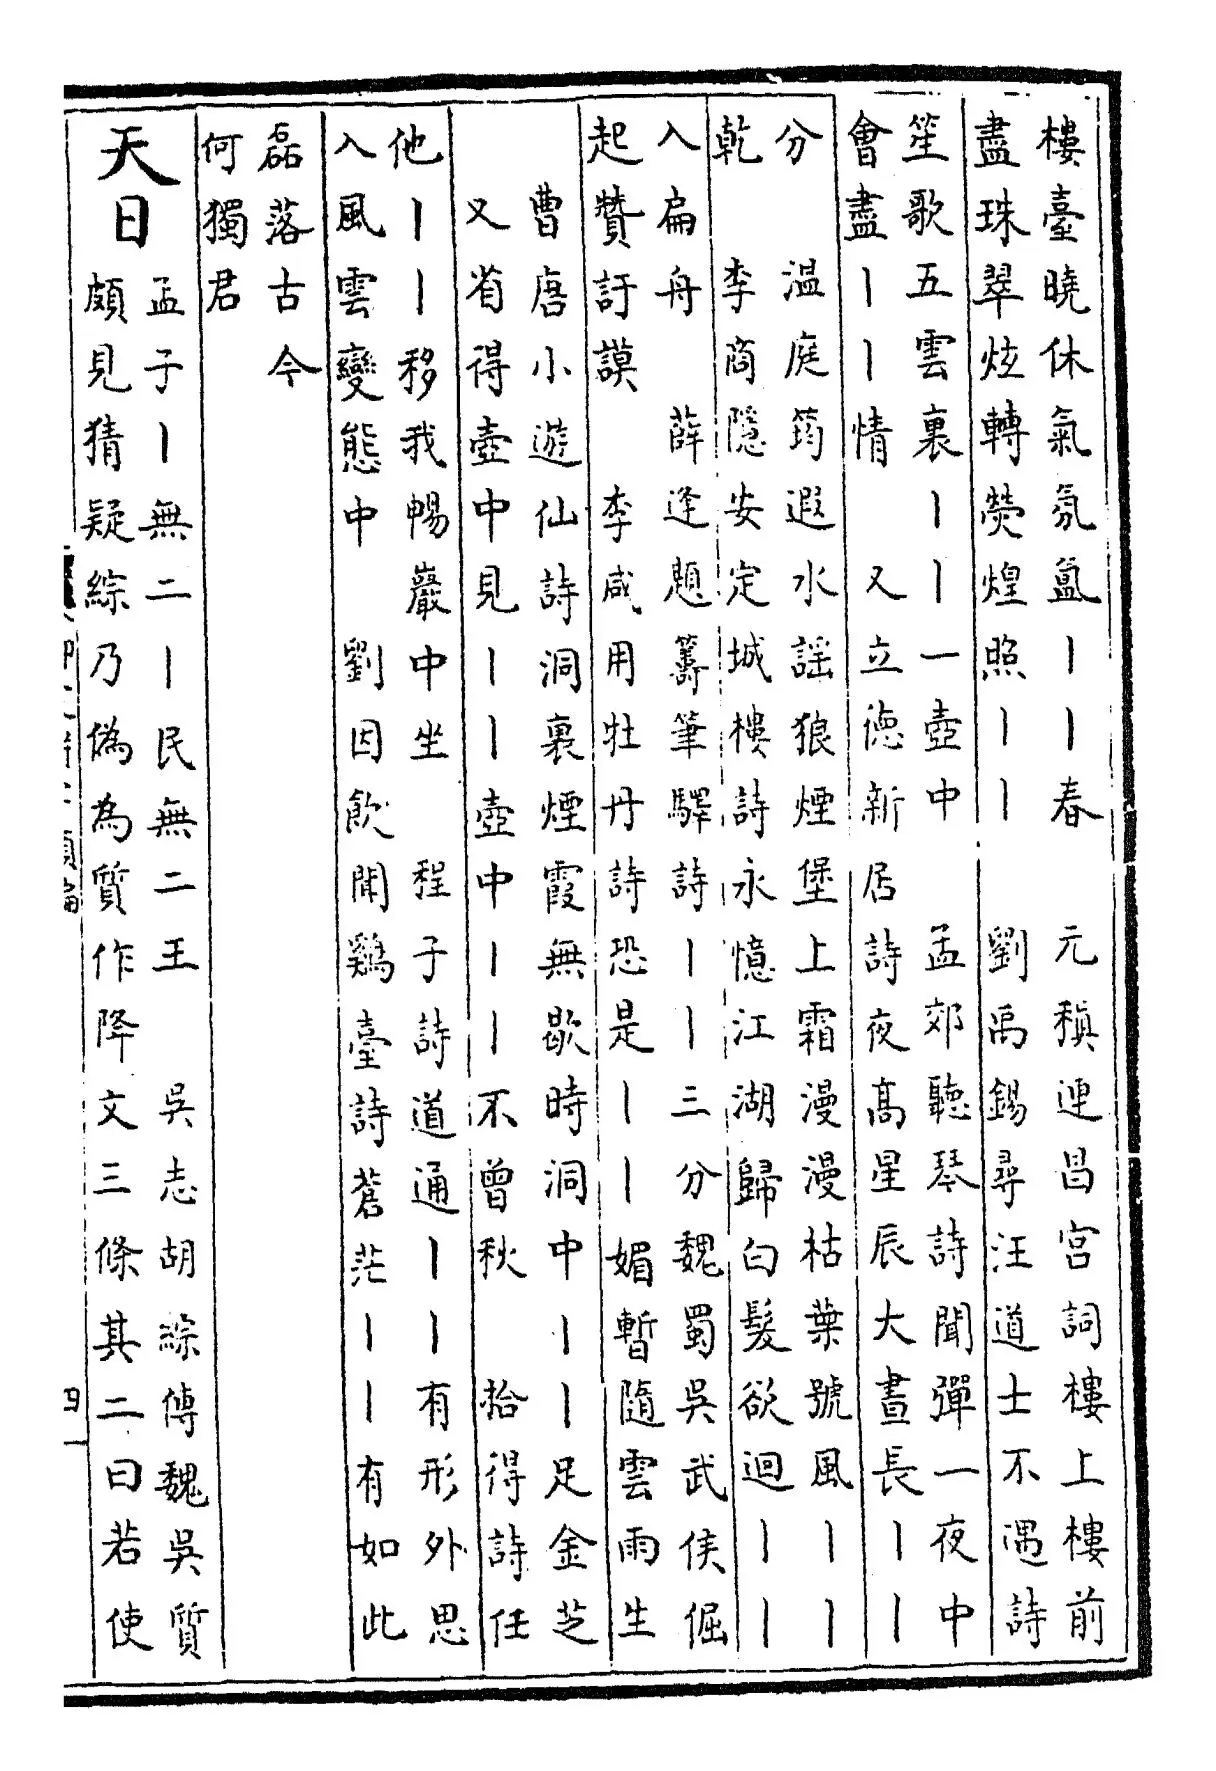 樓臺曉休氣氛氳〡〡春　元稹連昌宮詞樓上樓前
盡珠翠炫轉熒煌照〡〡　劉禹錫尋汪道士不遇詩
笙歌五雲裏〡〡一壺中　孟郊聽琴詩聞彈一夜中
會盡〡〡情　又立德新居詩夜高星辰大晝長〡〡
分　溫庭筠遐水謡狼煙堡上霜漫漫枯葉號風〡〡
乾　李商隱安定城樓詩永憶江湖歸白髮欲迴〡〡
入扁舟　薛逢題籌筆驛詩〡〡三分魏蜀吳武侯倔
起贊訏謨　李咸用牡丹詩恐是〡〡媚暫隨雲雨生
曹唐小遊仙詩洞裏煙霞無歇時洞中〡〡足金芝
又省得壺中見〡〡壺中〡〡不曾秋　拾得詩任
他〡〡移我暢巖中坐　程子詩道通〡〡有形外思
入風雲變態中　劉因飲聞鷄臺詩蒼茫〡〡有如此
磊落古今
何獨君
天日
孟子〡無二〡民無二王　吳志胡綜傳魏吳質
頗見猜疑綜乃偽為質作降文三條其二曰若使
四一